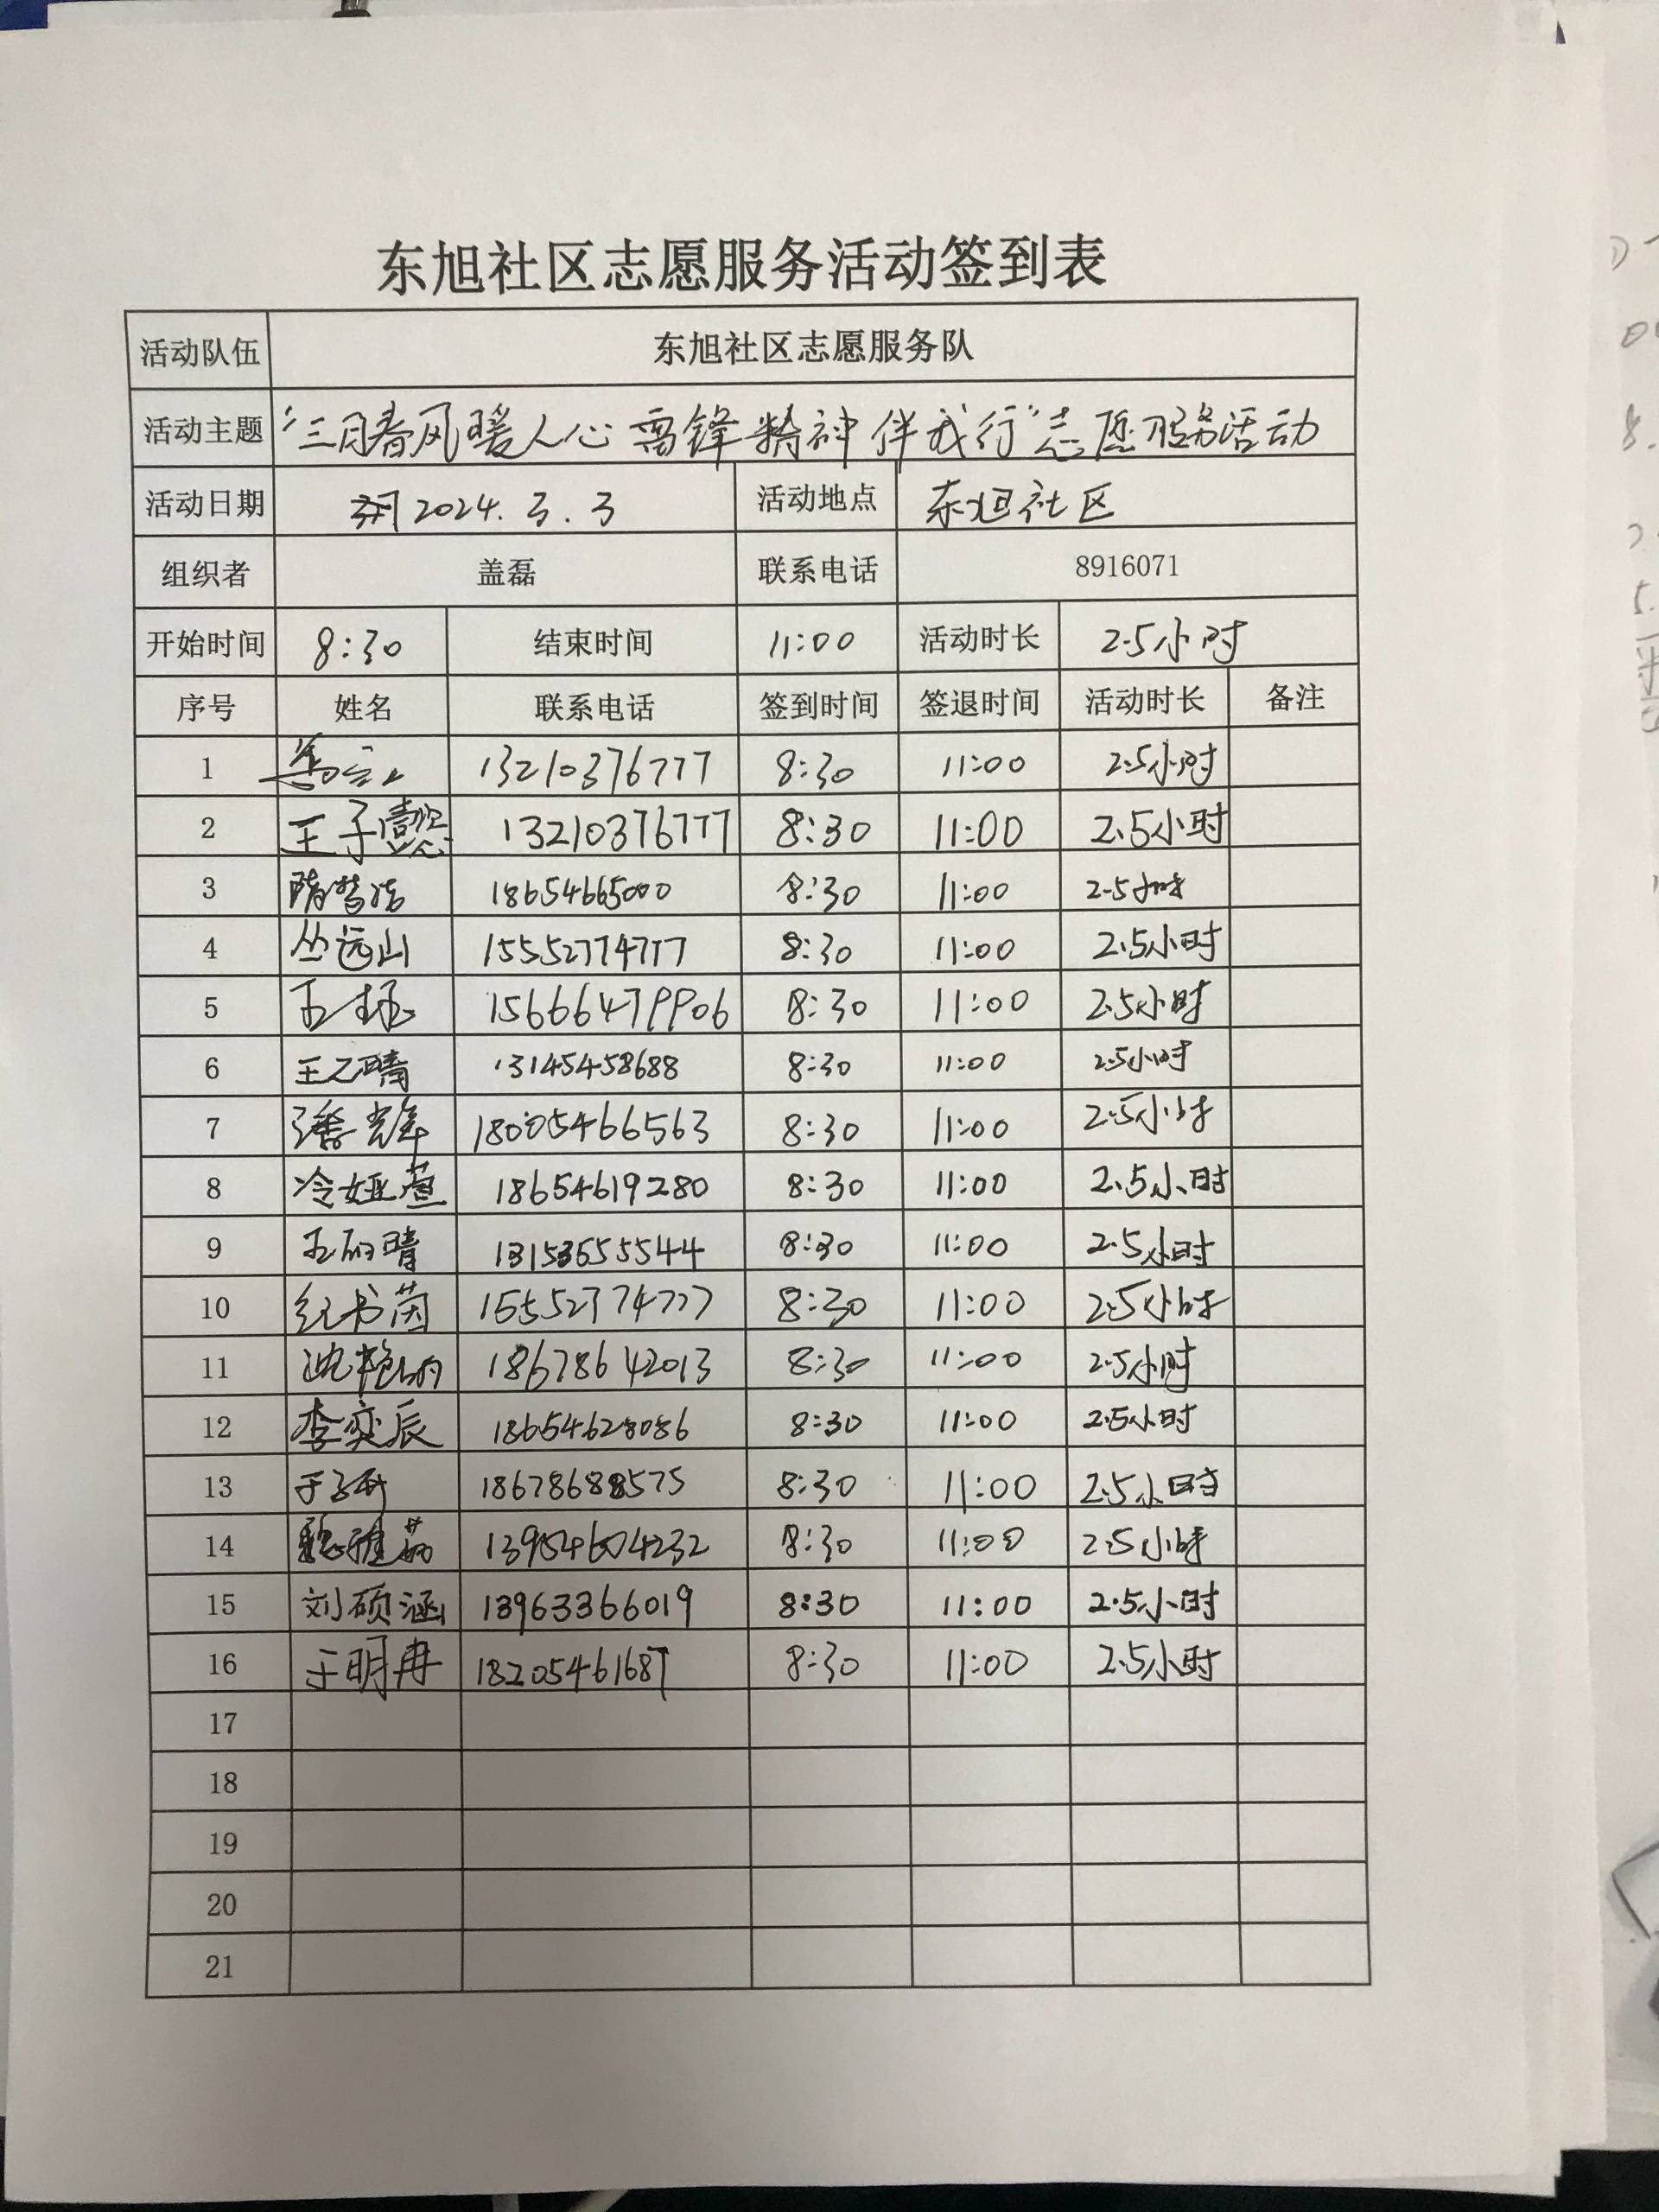 东旭社区志愿服务活动签到表
活动队伍 东旭社区志愿服务队
活动主题 “三月春风暖人心 雷锋精神伴我行”志愿服务活动
活动日期 2024.3.3 活动地点 东旭社区
组织者 盖磊 联系电话 8916071
开始时间 8:30 结束时间 11:00 活动时长 2.5小时
序号 姓名 联系电话 签到时间 签退时间 活动时长 备注
1 13210376777 8:30 11:00 2.5小时
2 王子懿 13210376777 8:30 11:00 2.5小时
3 18654665000 8:30 11:00 2.5小时
4 丛远山 15552774777 8:30 11:00 2.5小时
5 王珏 15666479906 8:30 11:00 2.5小时
6 王乙晴 13145458688 8:30 11:00 2.5小时
7 潘光辉 18005466563 8:30 11:00 2.5小时
8 冷娅萱 18654619280 8:30 11:00 2.5小时
9 王砚晴 13153655544 8:30 11:00 2.5小时
10 纪书茵 15552774777 8:30 11:00 2.5小时
11 18678642013 8:30 11:00 2.5小时
12 李奕辰 18654628086 8:30 11:00 2.5小时
13 18678688575 8:30 11:00 2.5小时
14 13954604232 8:30 11:00 2.5小时
15 刘硕涵 13963366019 8:30 11:00 2.5小时
16 于明冉 18205461687 8:30 11:00 2.5小时
17
18
19
20
21